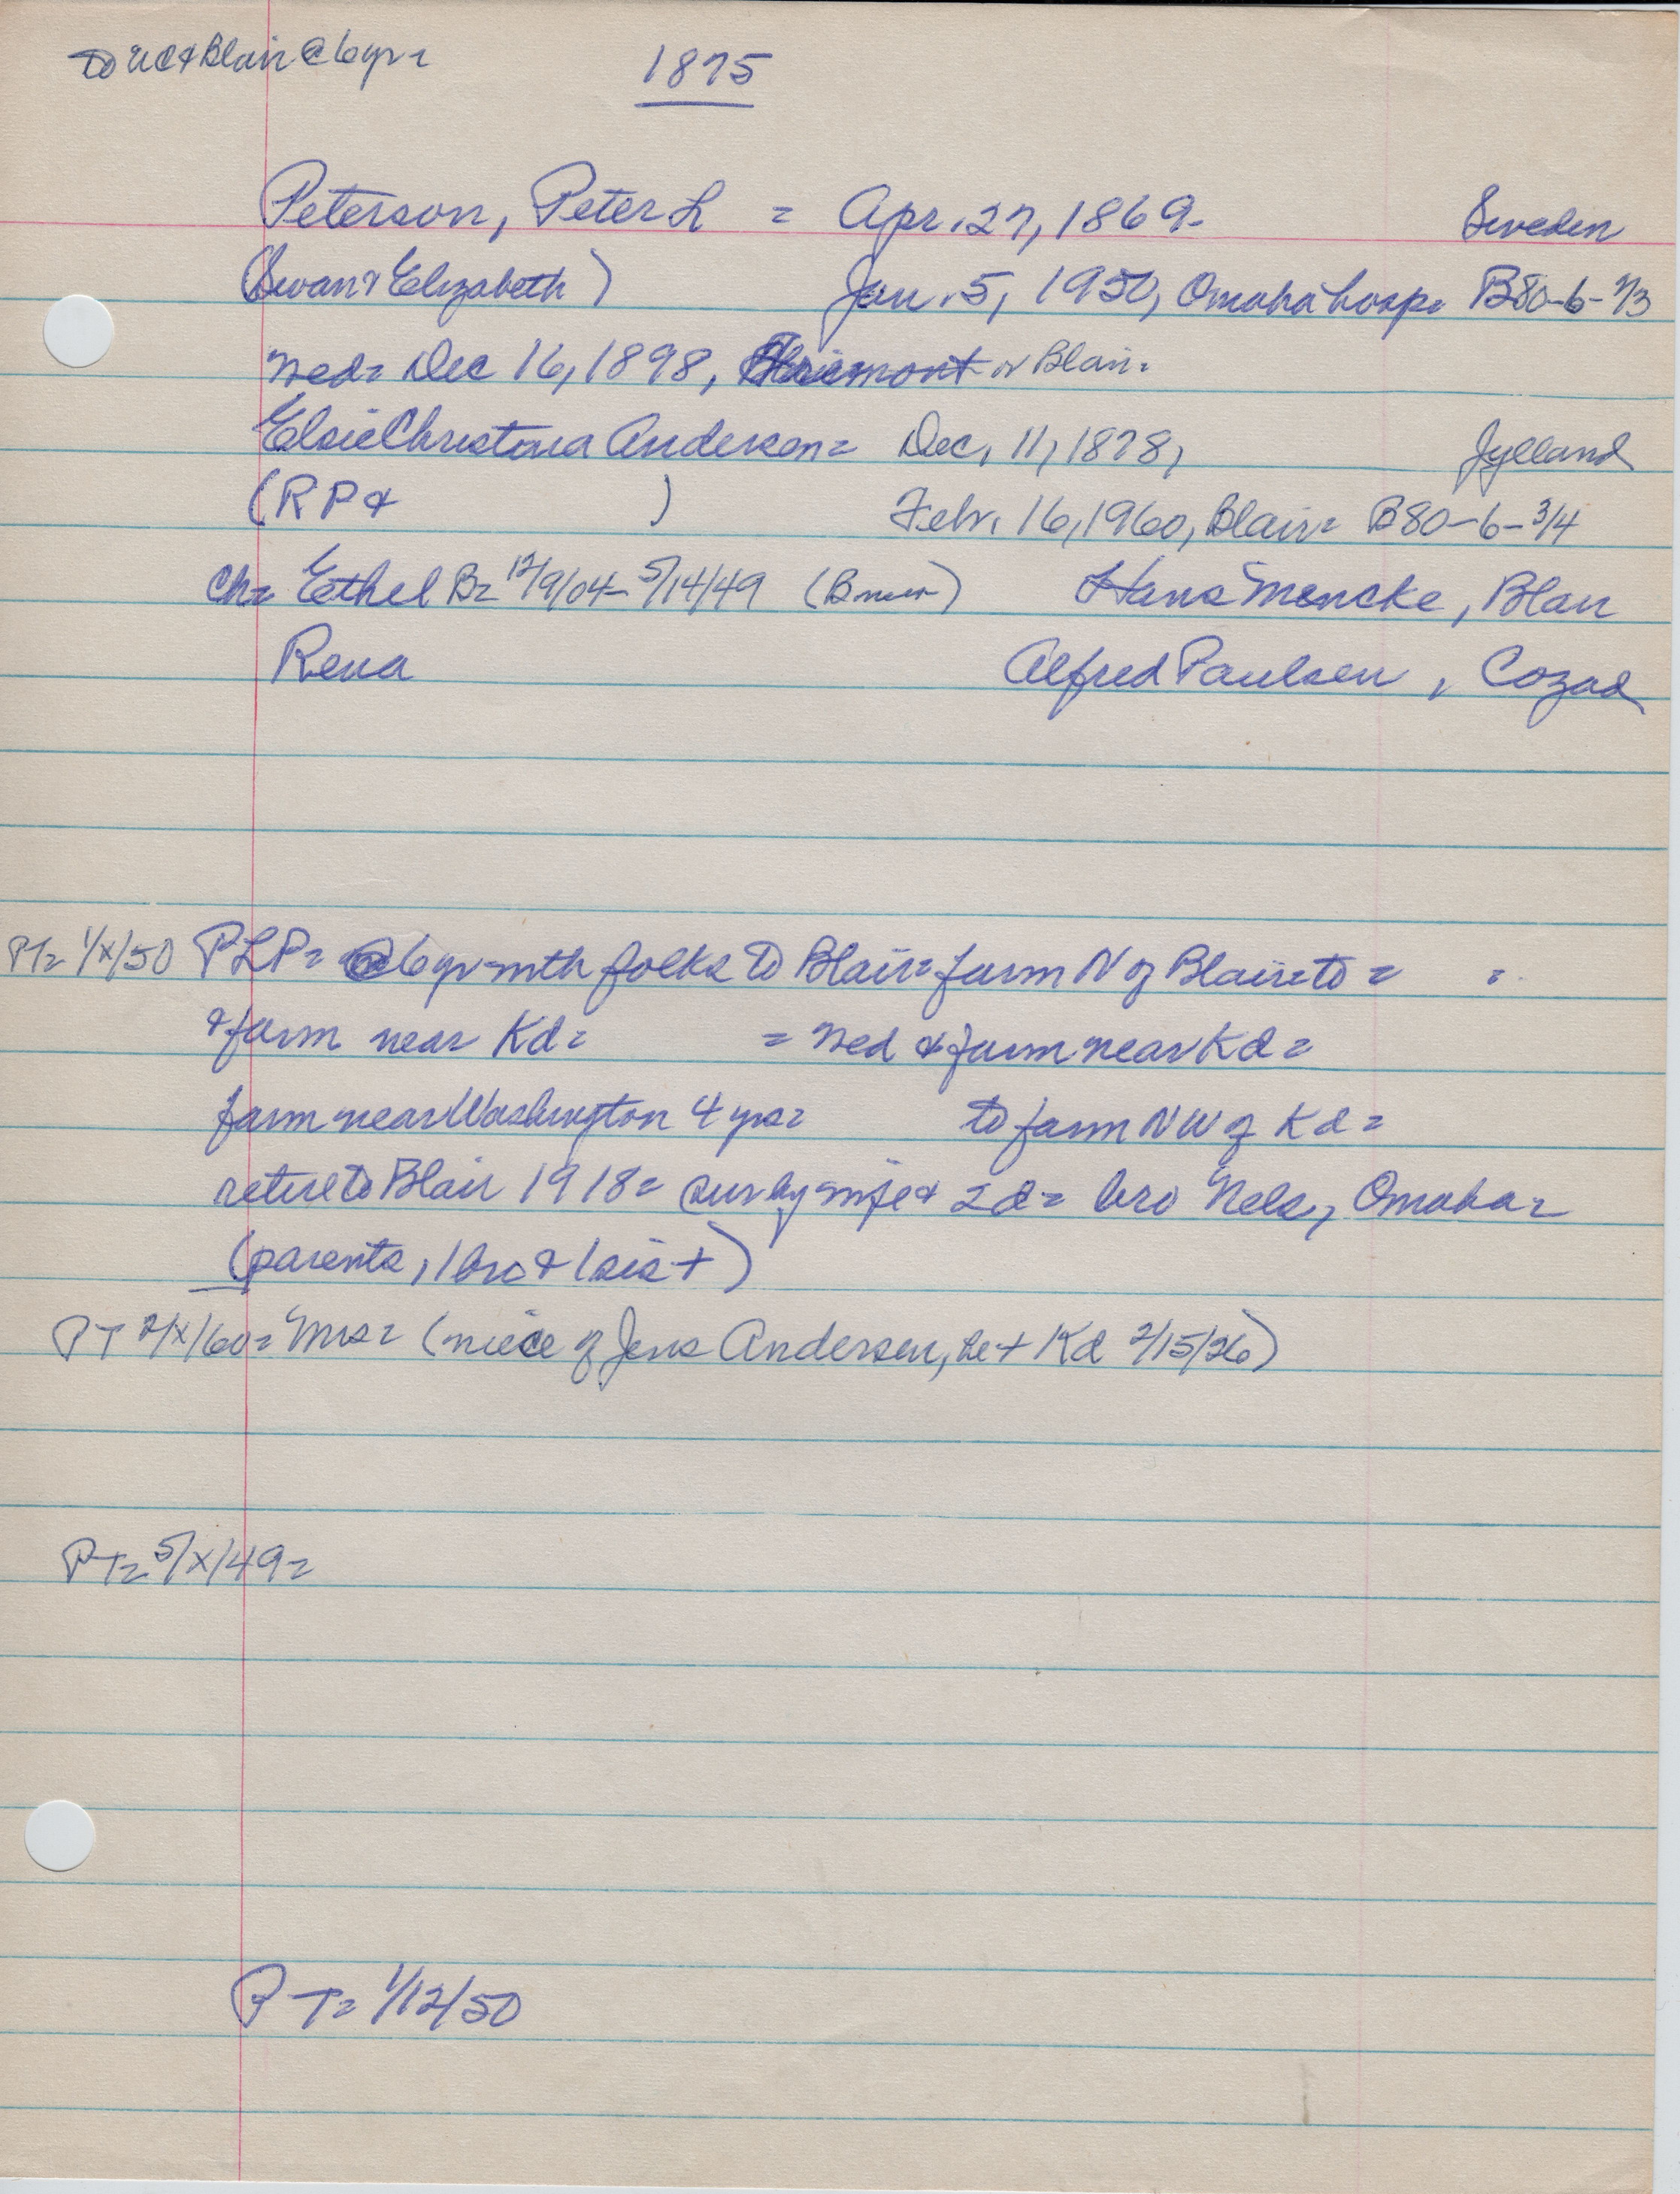 to & Blair @ 6 yr =
1875
Peterson, Peter L = Apr. 27, 1869 - Sweden
(Swan & Elizabeth) Jan. 5, 1950, Omaha hosp = B80-6-2/3
wed = Dec 16, 1898, or Blair =
Elsie Christena Andersen = Dec, 11, 1878, Jylland
(R P & ) Febr. 16, 1960, Blair = B80-6-3/4
ch = Ethel B = 12/9/04 - 5/14/49 Hans Mencke, Blair
Rena Alfred Paulsen, Cozad
PT = 1/x/50 PLP = @ 6 yr with folks to Blair = farm N of Blair = to = =
& farm near Kd = = wed & farm near Kd =
farm near Washington 4 yrs = to farm NW of Kd =
retire to Blair 1918 = sur by wife & 2 d = bro Nels, Omaha =
(parents, 1 bro & 1 sis +)
PT 2/x/60 = Mrs = (niece of Jens Andersen, he + Kd 2/15/26)
PT = 5/x/49 =
PT = 1/12/50